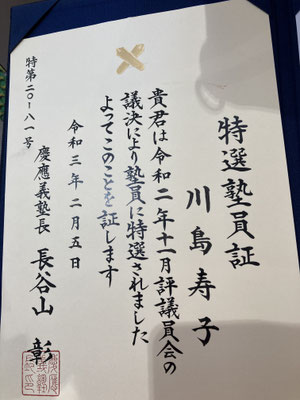 特選塾員証
川島寿子
貴君は令和二年十一月評議員会の
議決により塾員に特選されました
よってこのことを証します
令和三年二月五日
慶應義塾長 長谷山 彰
特第二〇-八一号